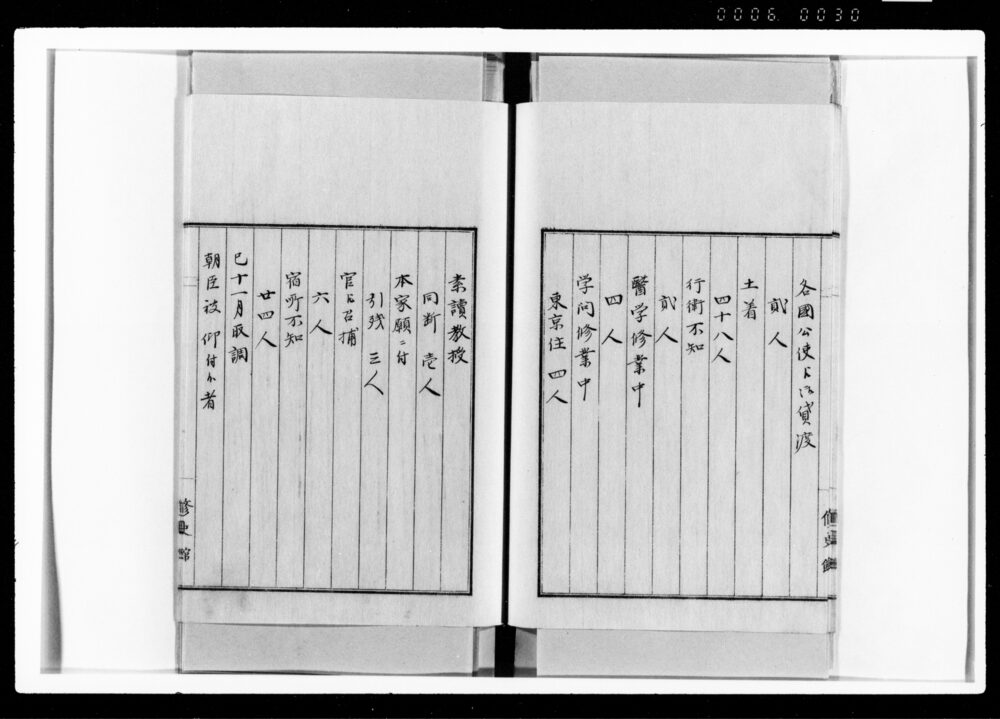 0006.0030
各國公使ゟ御貸渡
貳人
土着
四十八人
行衛不知
貳人
醫学修業中
四人
学問修業中
東京住 四人
修史館
素讀教授
同断 壱人
本家願ニ付
引残 三人
官ゟ召捕
六人
宿所不知
廿四人
巳十一月取調
朝臣被 仰付候者
修史館